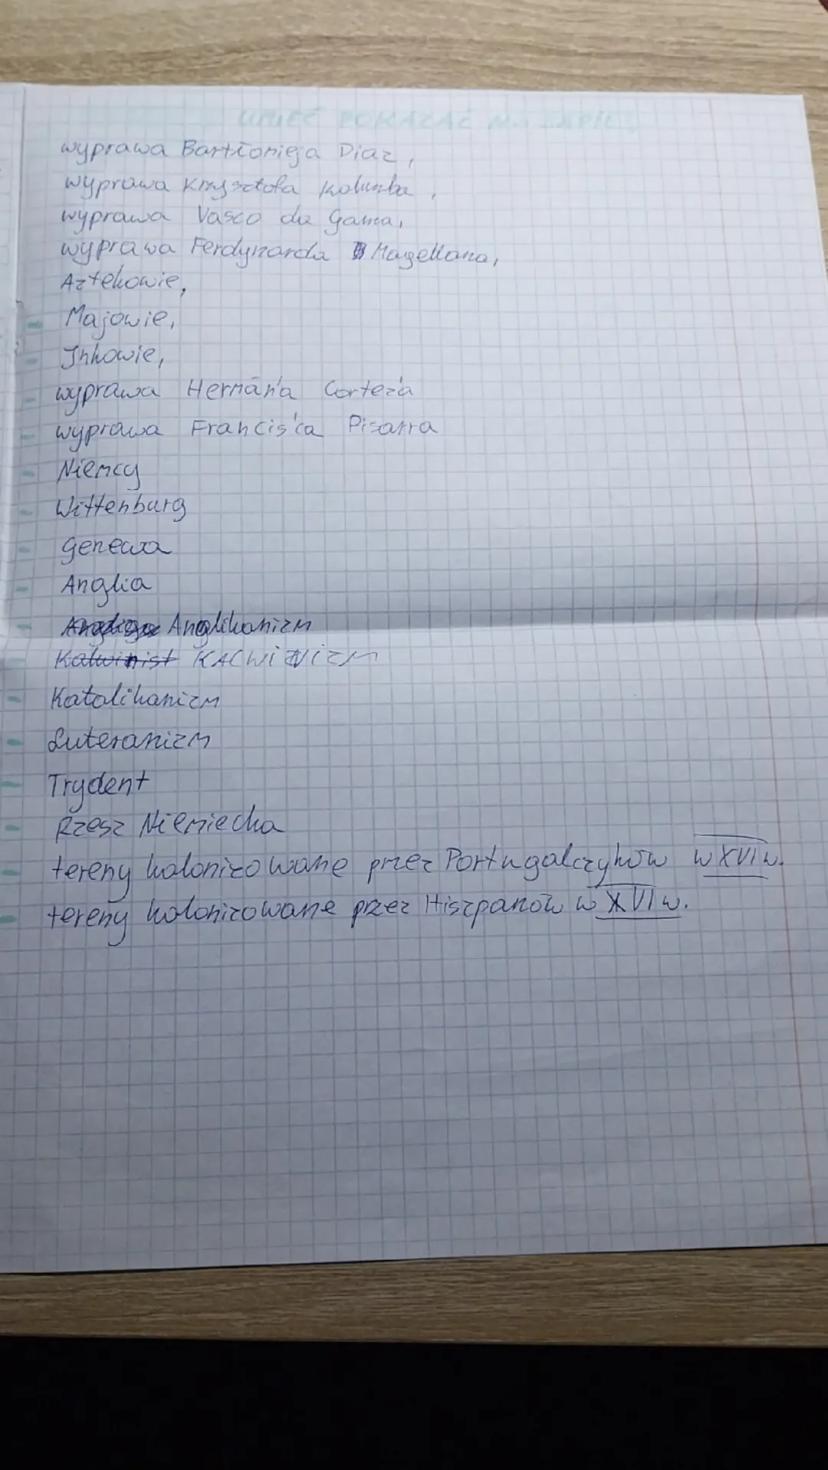 UMIEĆ POKAZAĆ NA MAPIE:
wyprawa Bartłomieja Diaz,
wyprawa Krzysztofa Kolumba,
wyprawa Vasco da Gama,
wyprawa Ferdynanda Magellana,
Aztekowie,
Majowie,
Inkowie,
wyprawa Hernán'a Cortez'a
wyprawa Francis'ca Pisarra
Niemcy
Wittenburg
genewa
Anglia
Anglikanizm
Kalwinist KALWINIZM
Katolikanizm
Luteranizm
Trydent
Rzesz Niemiecka
tereny kolonizowane przez Portugalczyków w XVI w.
tereny kolonizowane przez Hiszpanów w XVI w.